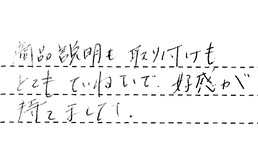 商品説明も取り付けも
とてもていねいで、好感が
持てました。